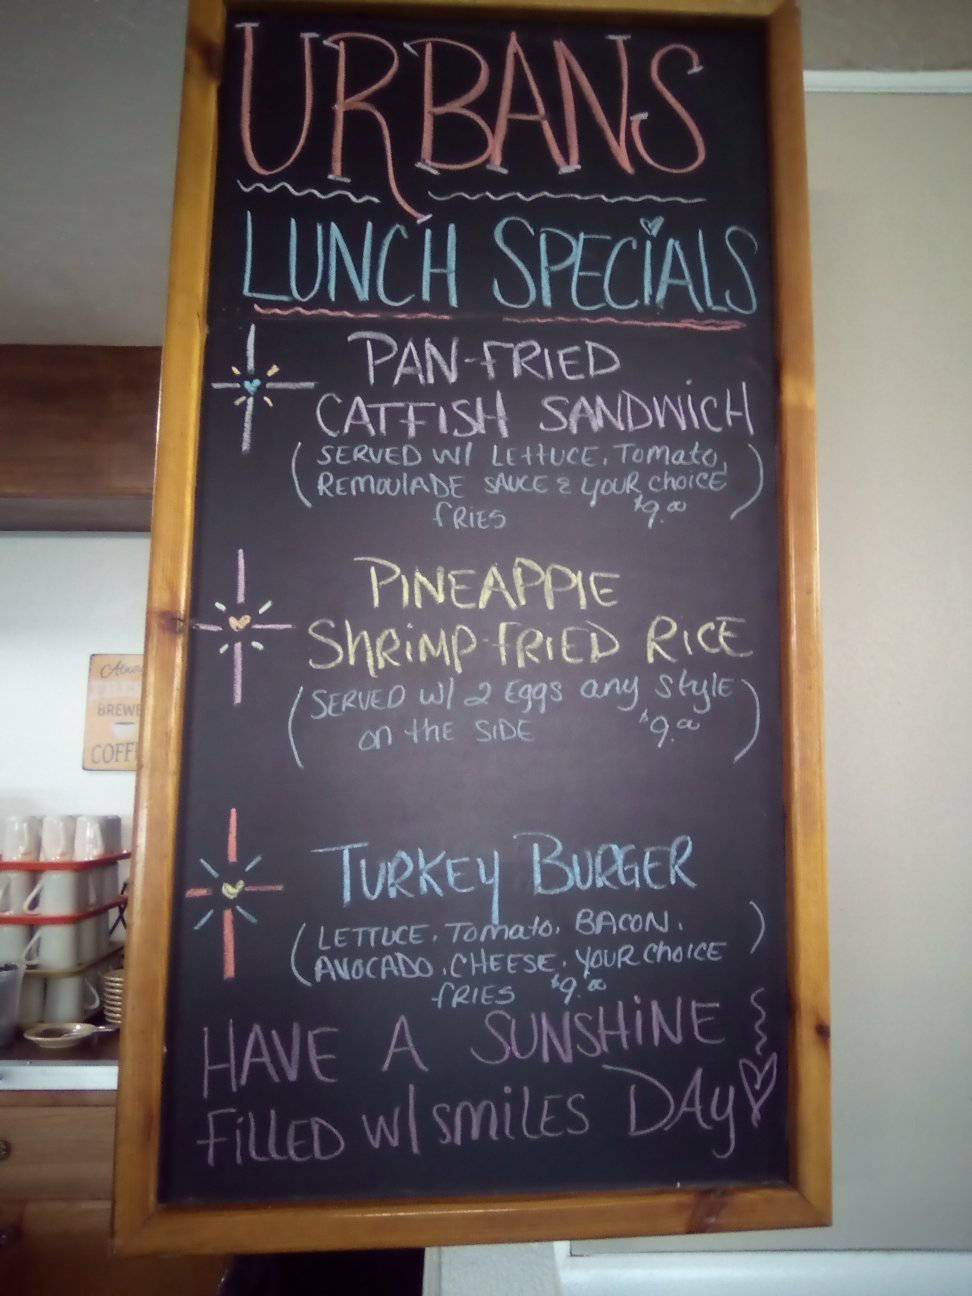 URBANS
LUNCH SPECIALS
PAN-FRIED
CATFISH SANDWICH
(SERVED W/ LETTUCE, Tomato,
REMOULADE SAUCE & YOUR CHOICE
FRIES $9.00)
PINEAPPLE
ShRiMP-FRIED RICE
(SERVED W/ 2 Eggs any Style
on the SIDE $9.00)
TURKEY BURGER
(LETTUCE, Tomato, BACON,
AVOCADO, CHEESE, YOUR CHOICE
FRIES $9.00)
HAVE A SUNSHiNE
FiLLED W/ SmiLES DAy
BREWE
COFF